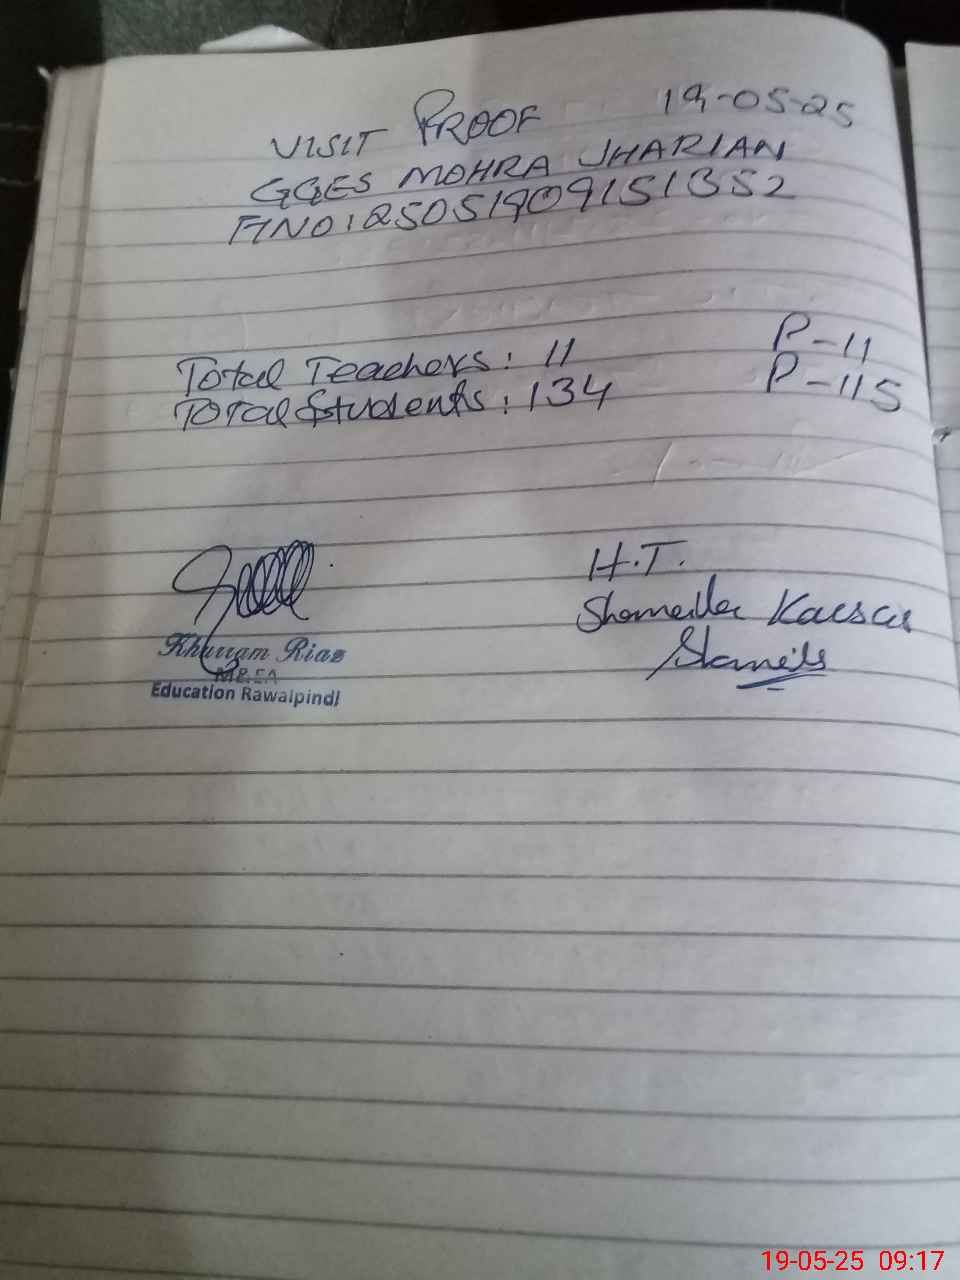 VISIT PROOF 19-05-25
GGES MOHRA JHARIAN
FINO: 25051909151352
Total Teachers: 11 P-11
Total Students: 134 P-115
H.T.
Khurram Riaz
M&EA
Education Rawalpindi
19-05-25 09:17